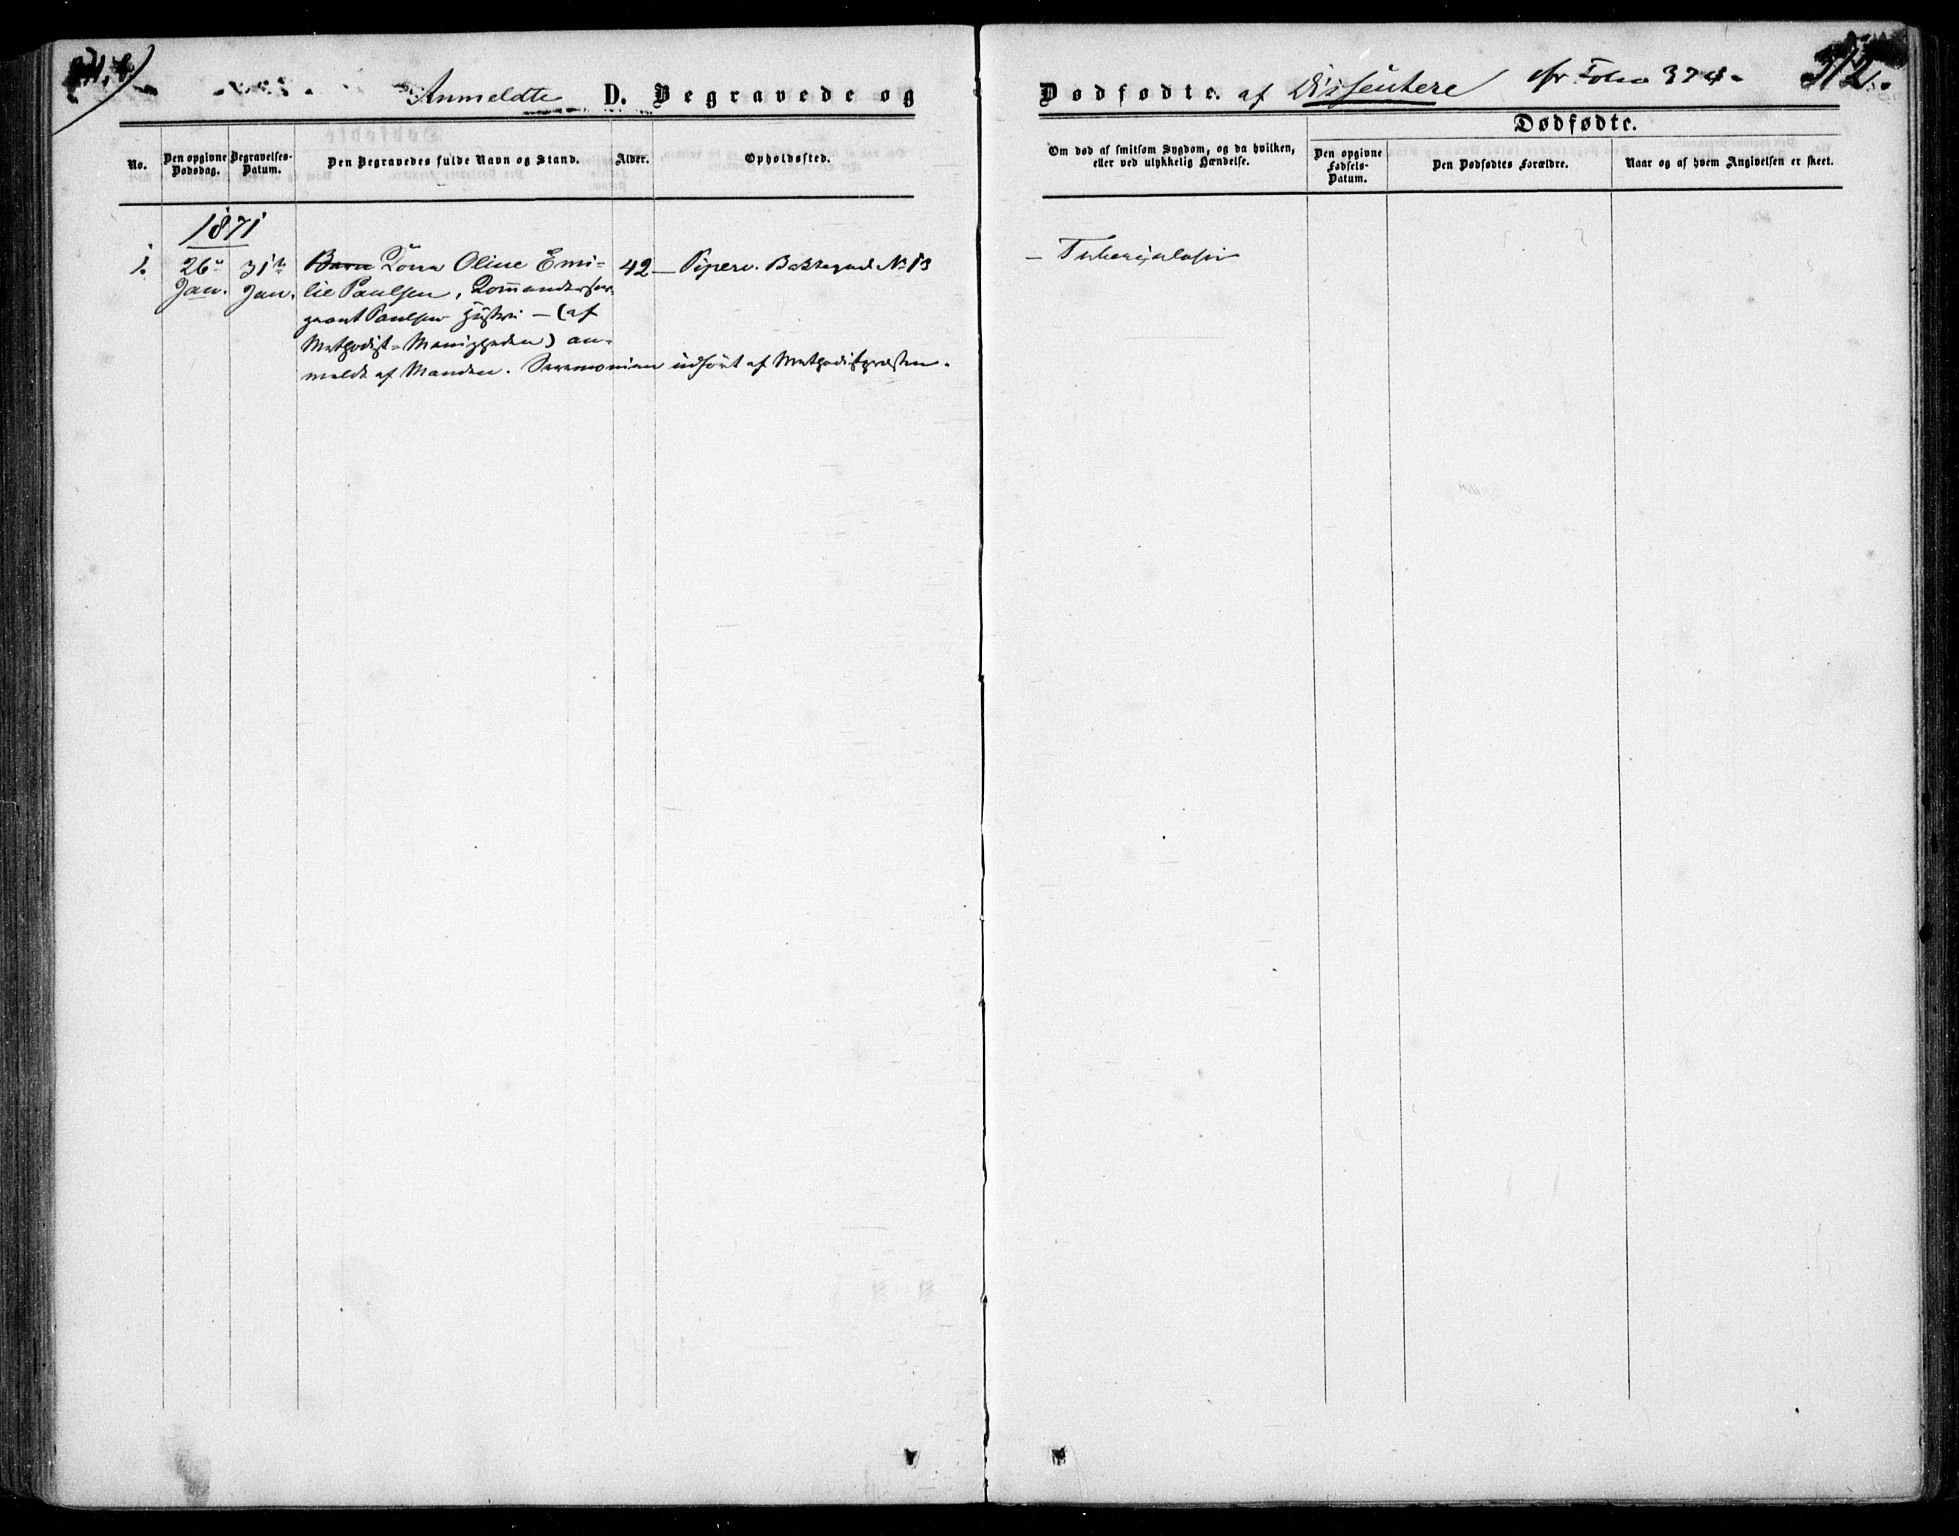 Anmeldte D. Begravede og
Dødfødte. af Dissentere cfr Folio 374.
312.
No.
Den opgivne Dødsdag.
Begravelses-Datum.
Den Begravedes fulde Navn og Stand.
Alder.
Opholdssted.
Om død af smitsom Sygdom, og da hvilken,
eller ved ulykkelig Hændelse.
Dødfødte.
Den opgivne Fødsels-Datum.
Den Dødfødtes Forældre.
Naar og af hvem Angivelsen er skeet.
1871
1. 26de 31te Barn Kone Oline Emi= 42 — Piperv. Bakkegad No 13 — Tuberculosis
Jan. Jan. lie Paulsen, Commandeerser
geant Paulsens Hustru — (af
Methodist=Menigheden) an=
meldt af Manden. Ceremonien udført af Methodistpræsten.